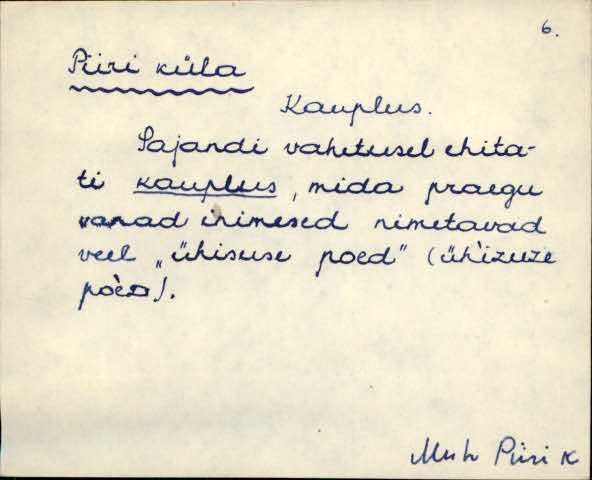 6.
Piiri küla
Kauplus.
Sajandi vahetusel ehita-
ti kauplus, mida praegu
vanad inimesed nimetavad
veel „ühisuse poed" (üh̀izuze
pòeᴅ).
Muh Piiri k